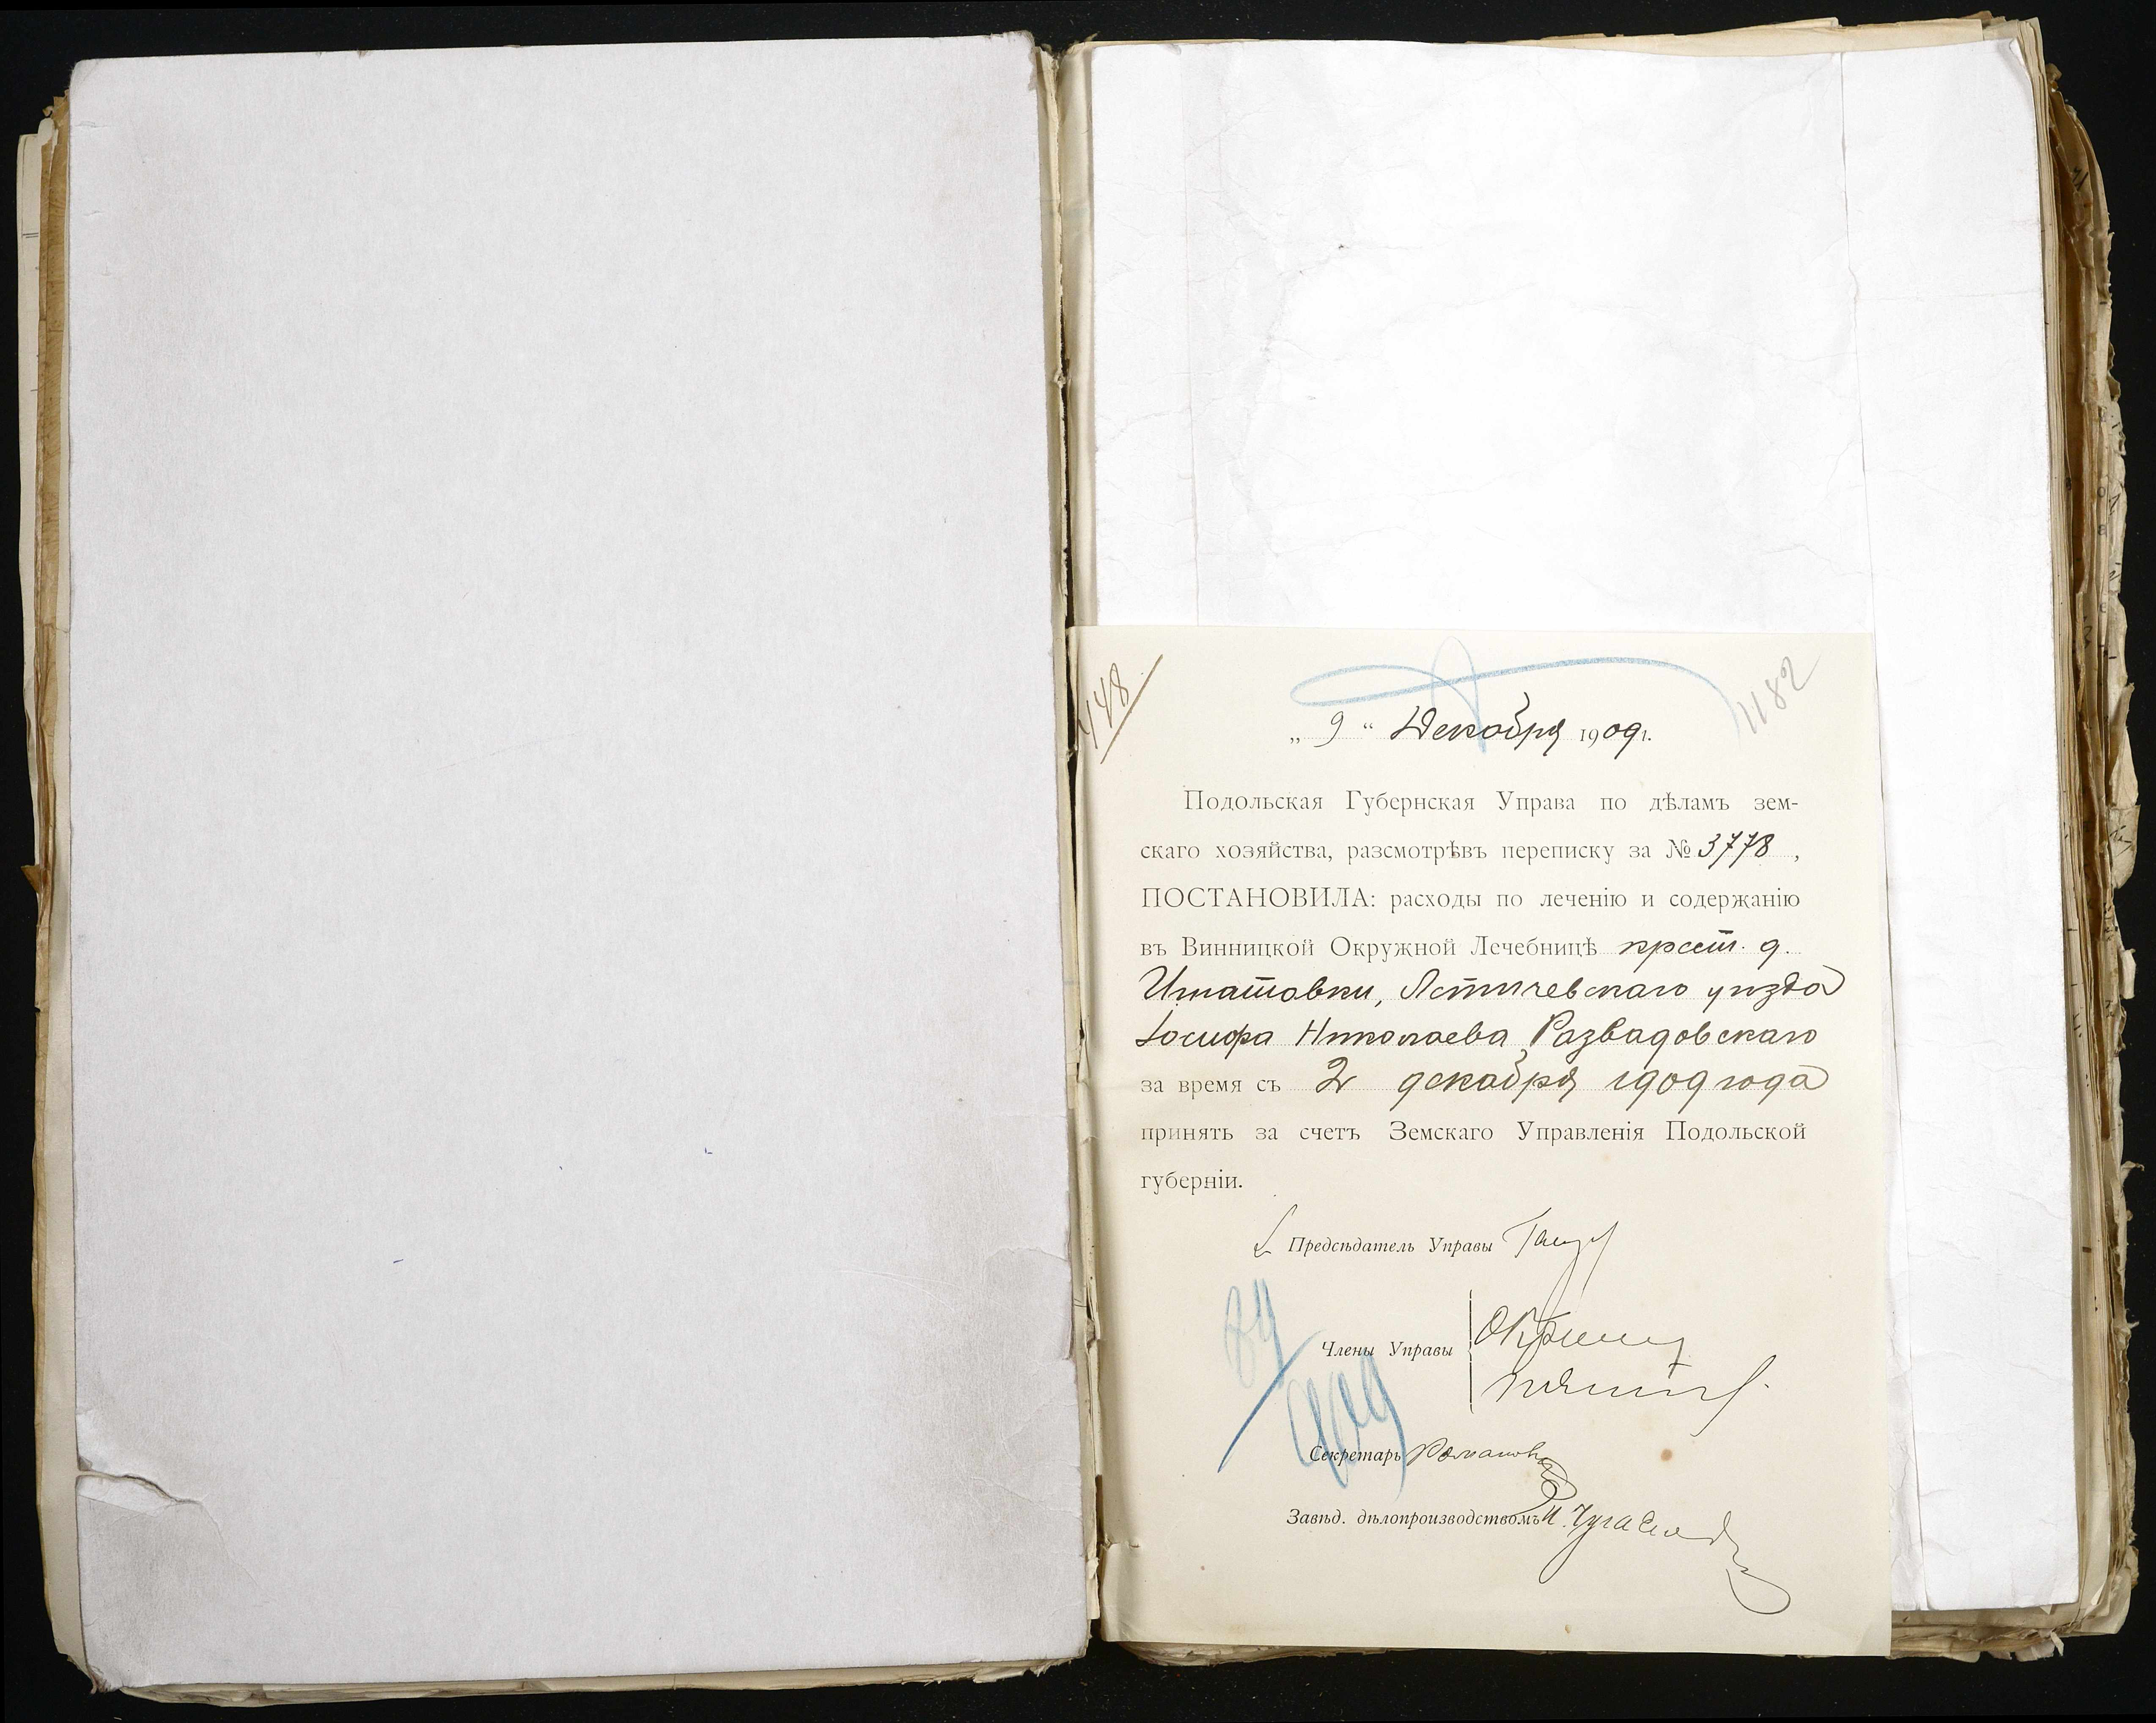 448
1182
„ 9 “ Декабря 1909 г.
Подольская Губернская Управа по дѣламъ зем-
скаго хозяйства, разсмотрѣвъ переписку за № 3778 ,
ПОСТАНОВИЛА: расходы по леченію и содержанію
въ Винницкой Окружной Лечебницѣ крест. д.
Игнатовки, Летичевскаго уѣзда
Іосифа Николаева Развадовскаго
за время съ 2 декабря 1909 года
принять за счетъ Земскаго Управленія Подольской
губерніи.
Предсѣдатель Управы
Члены Управы
Секретарь Романов
Завѣд. дѣлопроизводствомъ